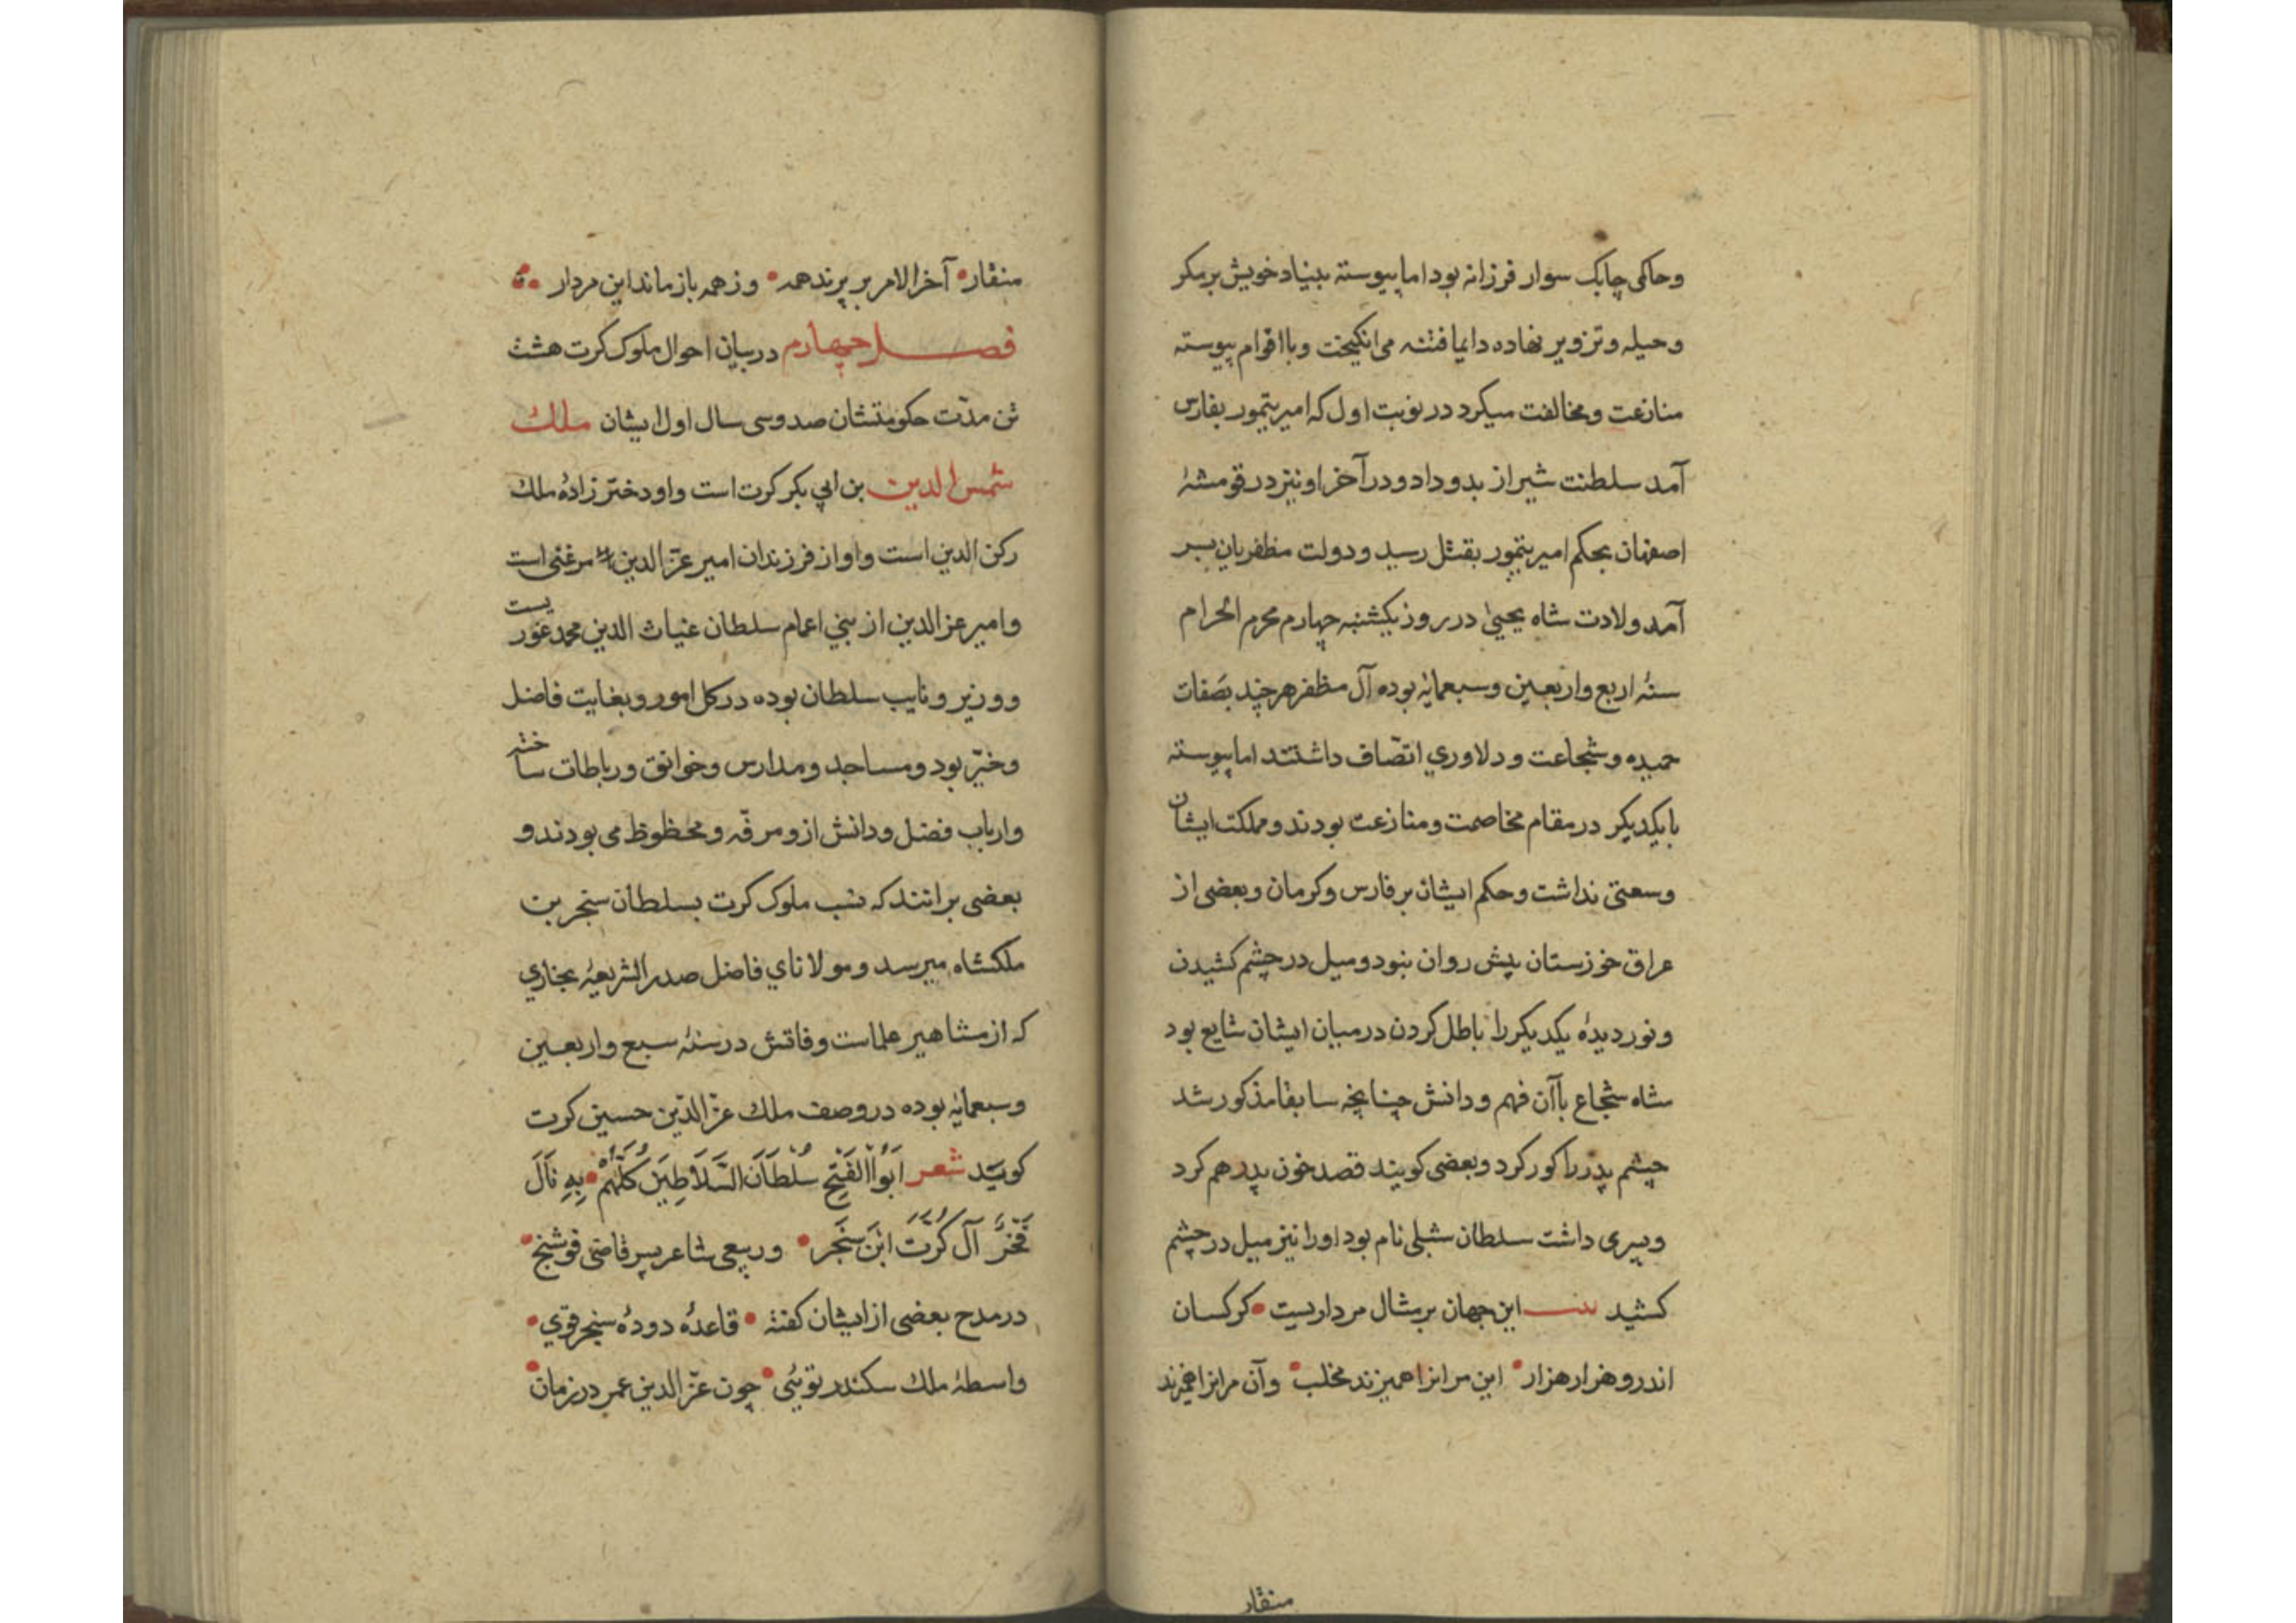 وحاکمی چابک سوار فرزانه بود اما پیوسته بنیاد خویش بر مکر
وحیله وتزویر نهاده دایما فتنه می انکیخت وبا اقوام پیوسته
منازعت ومخالفت میکرد در نوبت اول که امیر تیمور بفارس
آمد سلطنت شیراز بدو داد ودر آخر او نیز در قومشهٔ
اصفهان بحکم امیر تیمور بقتل رسید ودولت مظفریان بسر
آمد ولادت شاه یحیی در روز یکشنبه چهارم محرم الحرام
سنهٔ اربع واربعین وسبعمایٔه بوده آل مظفر هر چند بصفات
حمیده وشجاعت ودلاوری اتصّاف داشتند اما پیوسته
با یکدیکر در مقام مخاصمت ومنازعت بودند ومملکت ایشان
وسعتی نداشت وحکم ایشان بر فارس وکرمان وبعضی از
عراق خوزستان پیش روان نبود ومیل در چشم کشیدن
ونور دیدهٔ یکدیکر را باطل کردن در میان ایشان شایع بود
شاه شجاع با آن فهم ودانش چنانچه سابقا مذکور شد
چشم پدر را کور کرد وبعضی کویند قصد خون پدر هم کرد
وپسری داشت سلطان شبلی نام بود او را نیز میل در چشم
کشید بیت این جهان بر مثال مرداریست • کرکسان
اندرو هزار هزار • این مر انرا همیزند مخلب • وآن مر انرا همیزند
منقار
منقار • آخر الامر بر پرند همه • وز همه باز ماند این مردار
فصل چهارم در بیان احوال ملوک کرت هشت
تن مدّت حکومتشان صد وسی سال اول ایشان ملک
شمس الدین بن ابی بکر کرت است واو دختر زادهٔ ملک
رکن الدین است واو از فرزندان امیر عزّ الدین مرغنی است
وامیر عز الدین از بنی اعمام سلطان غیاث الدین محمد غوریست
ووزیر ونایب سلطان بوده در کل امور وبغایت فاضل
وخیّر بود ومساجد ومدارس وخوانق ورباطات ساخته
وارباب فضل ودانش ازو مرفّه ومحظوظ می بودند و
بعضی برانند که نسب ملوک کرت بسلطان سنجر بن
ملکشاه میرسد ومولانای فاضل صدر الشریعهٔ بخاری
که از مشاهیر علماست وفاتش در سنهٔ سبع واربعین
وسبعمایٔه بوده در وصف ملک عزّ الدّین حسین کرت
کویید شعر اَبُو الفَتْحِ سُلْطَانَ السَّلاَطِیْنَ کُلُّهُمْ • بِهِ نَالَ
فَخْرً آلَ کُرْتَ ابْنَ سَنْجَر • وربیعی شاعر پسر قاضی فوشنج •
در مدح بعضی از ایشان کفته • قاعدهٔ دودهٔ سنجر قوی •
واسطهٔ ملک سکندر تویٔی • چون عزّ الدین عمر در زمان •